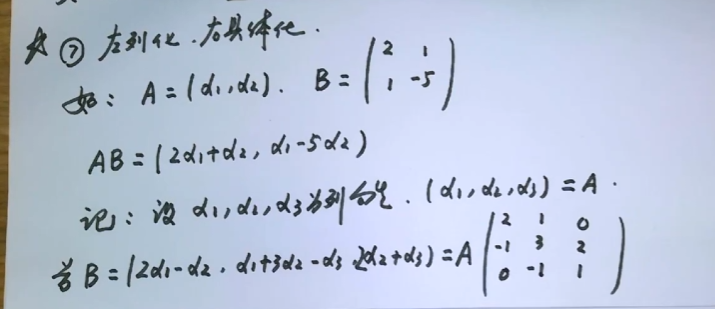 ☆ ⑦ 左列化.右具体化.
如: A=(α₁,α₂). B=(2 1
1 -5)
AB=(2α₁+α₂, α₁-5α₂)
记: 设 α₁,α₂,α₃为列向量. (α₁,α₂,α₃)=A.
若B=(2α₁-α₂, α₁+3α₂-α₃, 2α₂+α₃)=A(2 1 0
-1 3 2
0 -1 1)